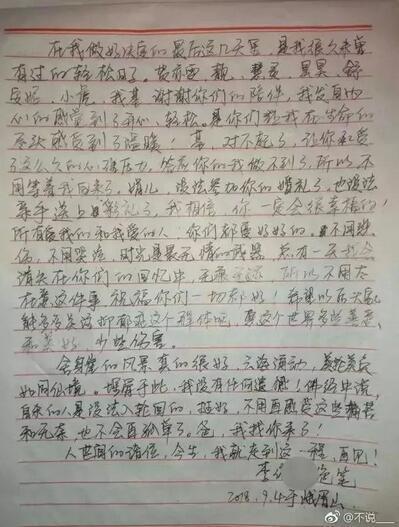 在我做好决定的最后这几天里，是我很久未曾
有过的轻松日子。
小虎，我真谢谢你们的陪伴，我发自内
心的感受到了开心，轻松。是你们让我在生命的
尽头感受到了温暖！ 对不起了，让你承受
了这么久的心理压力，答应你的我做不到了，所以，不
用等着我回来了。没法参加你的婚礼了，也没法
亲手送上 礼了，我相信，你一定会很幸福的！
所有爱我的和我爱的人：你们都要好好的！不用悲
伤，不用哭泣，时光是最无情的武器，总有一天我会
消失在你们的回忆中，无痕无迹，所以不用太
在意这件事，祝福你们一切都好！希望以后大家
能多关注这抑郁症这个群体吧，愿这个世界多些善意
和美好，少些伤害。
金顶的风景真的很好，云海涌动，美轮美奂
如同仙境。埋尸于此，我没有任何遗憾！佛经中说，
自杀的人是没法入轮回的，挺好，不用再感受这些痛苦
和无奈，也不会再孤单了。爸，我找你来了！
人世间的诸位，今生，我就走到这一程，再见！
李 绝笔
2018.9.4于峨眉山
@不说___